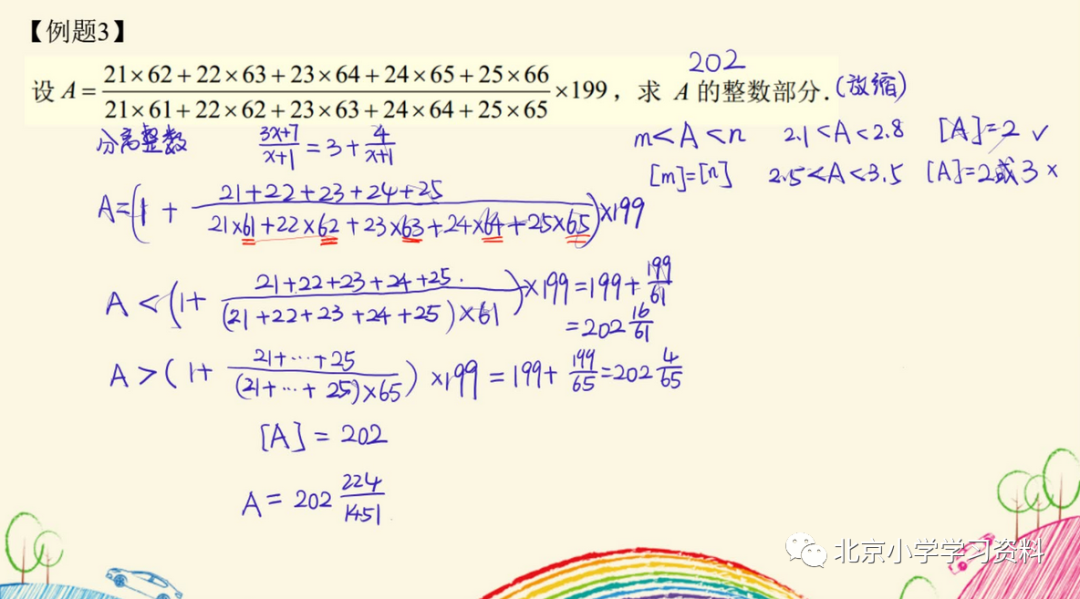 【例题3】
202
设 A = (21×62+22×63+23×64+24×65+25×66)/(21×61+22×62+23×63+24×64+25×65) ×199，求 A 的整数部分. (放缩)
分离整数 (3x+7)/(x+1) = 3 + 4/(x+1) m<A<n 2.1<A<2.8 [A]=2 ✓
[m]=[n] 2.5<A<3.5 [A]=2或3 ×
A=(1 + (21+22+23+24+25)/(21×61+22×62+23×63+24×64+25×65))×199
A <(1+ (21+22+23+24+25)/((21+22+23+24+25)×61))×199 =199+ 199/61
= 202 16/61
A >(1+ (21+…+25)/((21+…+25)×65)) ×199 = 199+ 199/65 =202 4/65
[A] = 202
A = 202 224/1451
北京小学学习资料